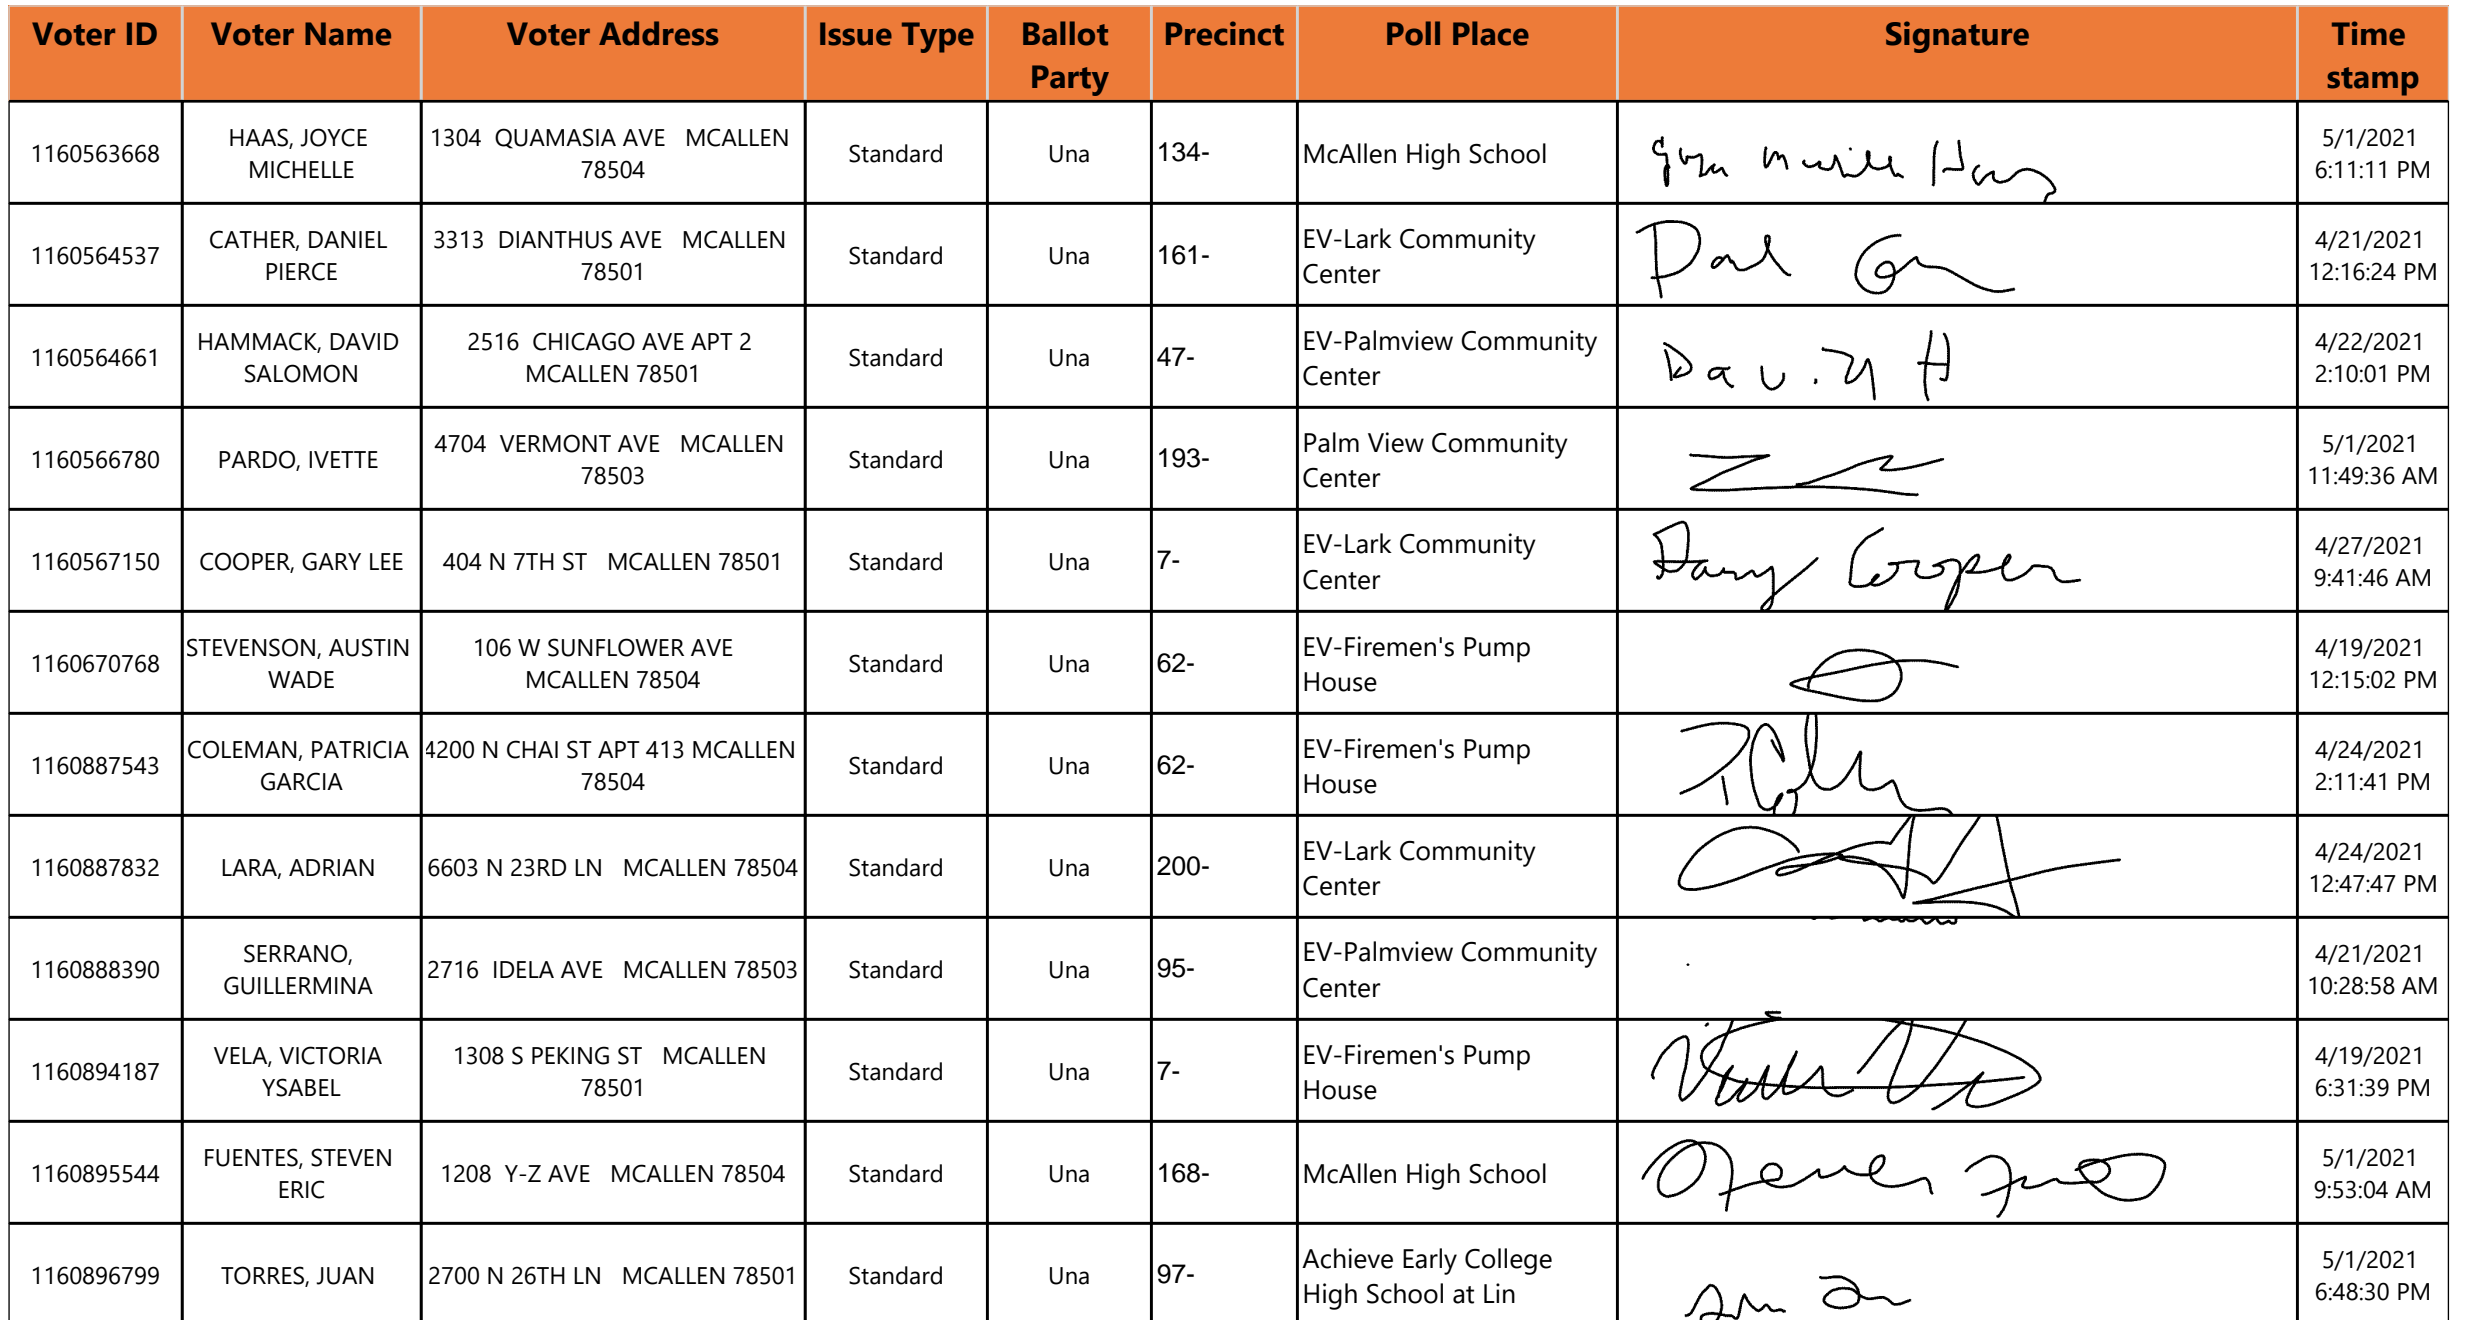 Voter ID Voter Name Voter Address Issue Type Ballot Party Precinct Poll Place Signature Time stamp
1160563668 HAAS, JOYCE MICHELLE 1304 QUAMASIA AVE MCALLEN 78504 Standard Una 134- McAllen High School 5/1/2021 6:11:11 PM
1160564537 CATHER, DANIEL PIERCE 3313 DIANTHUS AVE MCALLEN 78501 Standard Una 161- EV-Lark Community Center 4/21/2021 12:16:24 PM
1160564661 HAMMACK, DAVID SALOMON 2516 CHICAGO AVE APT 2 MCALLEN 78501 Standard Una 47- EV-Palmview Community Center 4/22/2021 2:10:01 PM
1160566780 PARDO, IVETTE 4704 VERMONT AVE MCALLEN 78503 Standard Una 193- Palm View Community Center 5/1/2021 11:49:36 AM
1160567150 COOPER, GARY LEE 404 N 7TH ST MCALLEN 78501 Standard Una 7- EV-Lark Community Center Gary Cooper 4/27/2021 9:41:46 AM
1160670768 STEVENSON, AUSTIN WADE 106 W SUNFLOWER AVE MCALLEN 78504 Standard Una 62- EV-Firemen's Pump House 4/19/2021 12:15:02 PM
1160887543 COLEMAN, PATRICIA GARCIA 4200 N CHAI ST APT 413 MCALLEN 78504 Standard Una 62- EV-Firemen's Pump House 4/24/2021 2:11:41 PM
1160887832 LARA, ADRIAN 6603 N 23RD LN MCALLEN 78504 Standard Una 200- EV-Lark Community Center 4/24/2021 12:47:47 PM
1160888390 SERRANO, GUILLERMINA 2716 IDELA AVE MCALLEN 78503 Standard Una 95- EV-Palmview Community Center 4/21/2021 10:28:58 AM
1160894187 VELA, VICTORIA YSABEL 1308 S PEKING ST MCALLEN 78501 Standard Una 7- EV-Firemen's Pump House 4/19/2021 6:31:39 PM
1160895544 FUENTES, STEVEN ERIC 1208 Y-Z AVE MCALLEN 78504 Standard Una 168- McAllen High School 5/1/2021 9:53:04 AM
1160896799 TORRES, JUAN 2700 N 26TH LN MCALLEN 78501 Standard Una 97- Achieve Early College High School at Lin 5/1/2021 6:48:30 PM